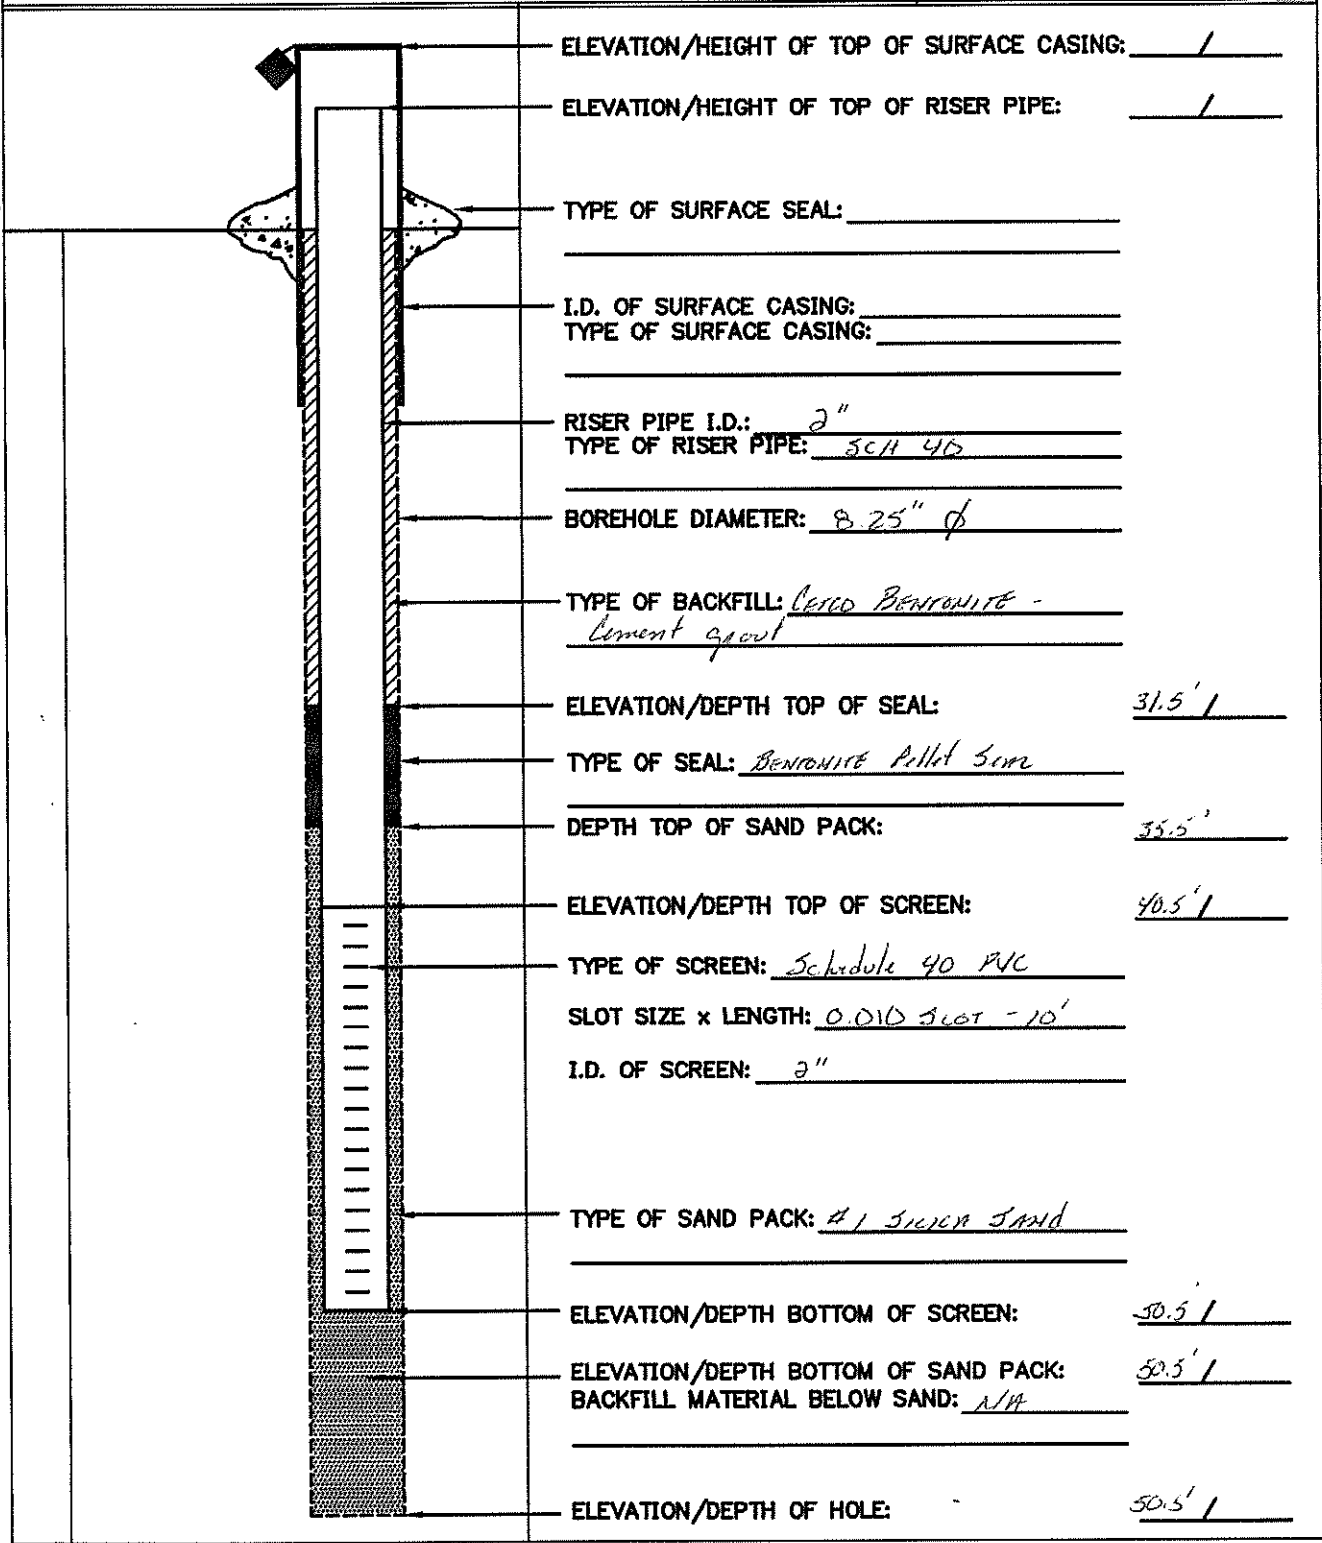 ELEVATION/HEIGHT OF TOP OF SURFACE CASING: /
ELEVATION/HEIGHT OF TOP OF RISER PIPE: /
TYPE OF SURFACE SEAL:
I.D. OF SURFACE CASING:
TYPE OF SURFACE CASING:
RISER PIPE I.D.: 2"
TYPE OF RISER PIPE: SCH 40
BOREHOLE DIAMETER: 8.25" ϕ
TYPE OF BACKFILL: CETCO BENTONITE -
Cement grout
ELEVATION/DEPTH TOP OF SEAL: 31.5' /
TYPE OF SEAL: BENTONITE Pellet
DEPTH TOP OF SAND PACK: 35.5'
ELEVATION/DEPTH TOP OF SCREEN: 40.5' /
TYPE OF SCREEN: Schedule 40 PVC
SLOT SIZE x LENGTH: 0.010 SLOT - 10'
I.D. OF SCREEN: 2"
TYPE OF SAND PACK: #1 SILICA SAND
ELEVATION/DEPTH BOTTOM OF SCREEN: 50.5' /
ELEVATION/DEPTH BOTTOM OF SAND PACK: 50.5' /
BACKFILL MATERIAL BELOW SAND: N/A
ELEVATION/DEPTH OF HOLE: 50.5' /